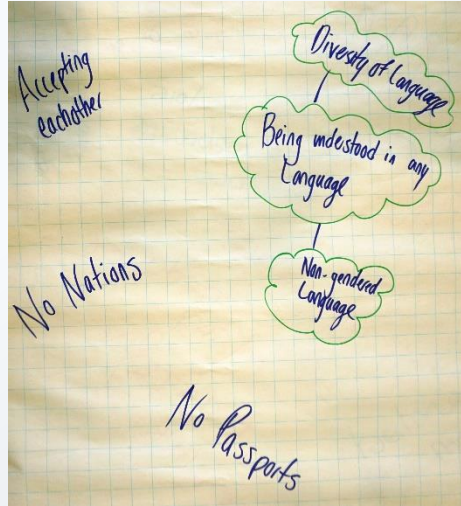 Accepting
eachother
Diversity of Language
Being understood in any
Language
Non-gendered
Language
No Nations
No Passports